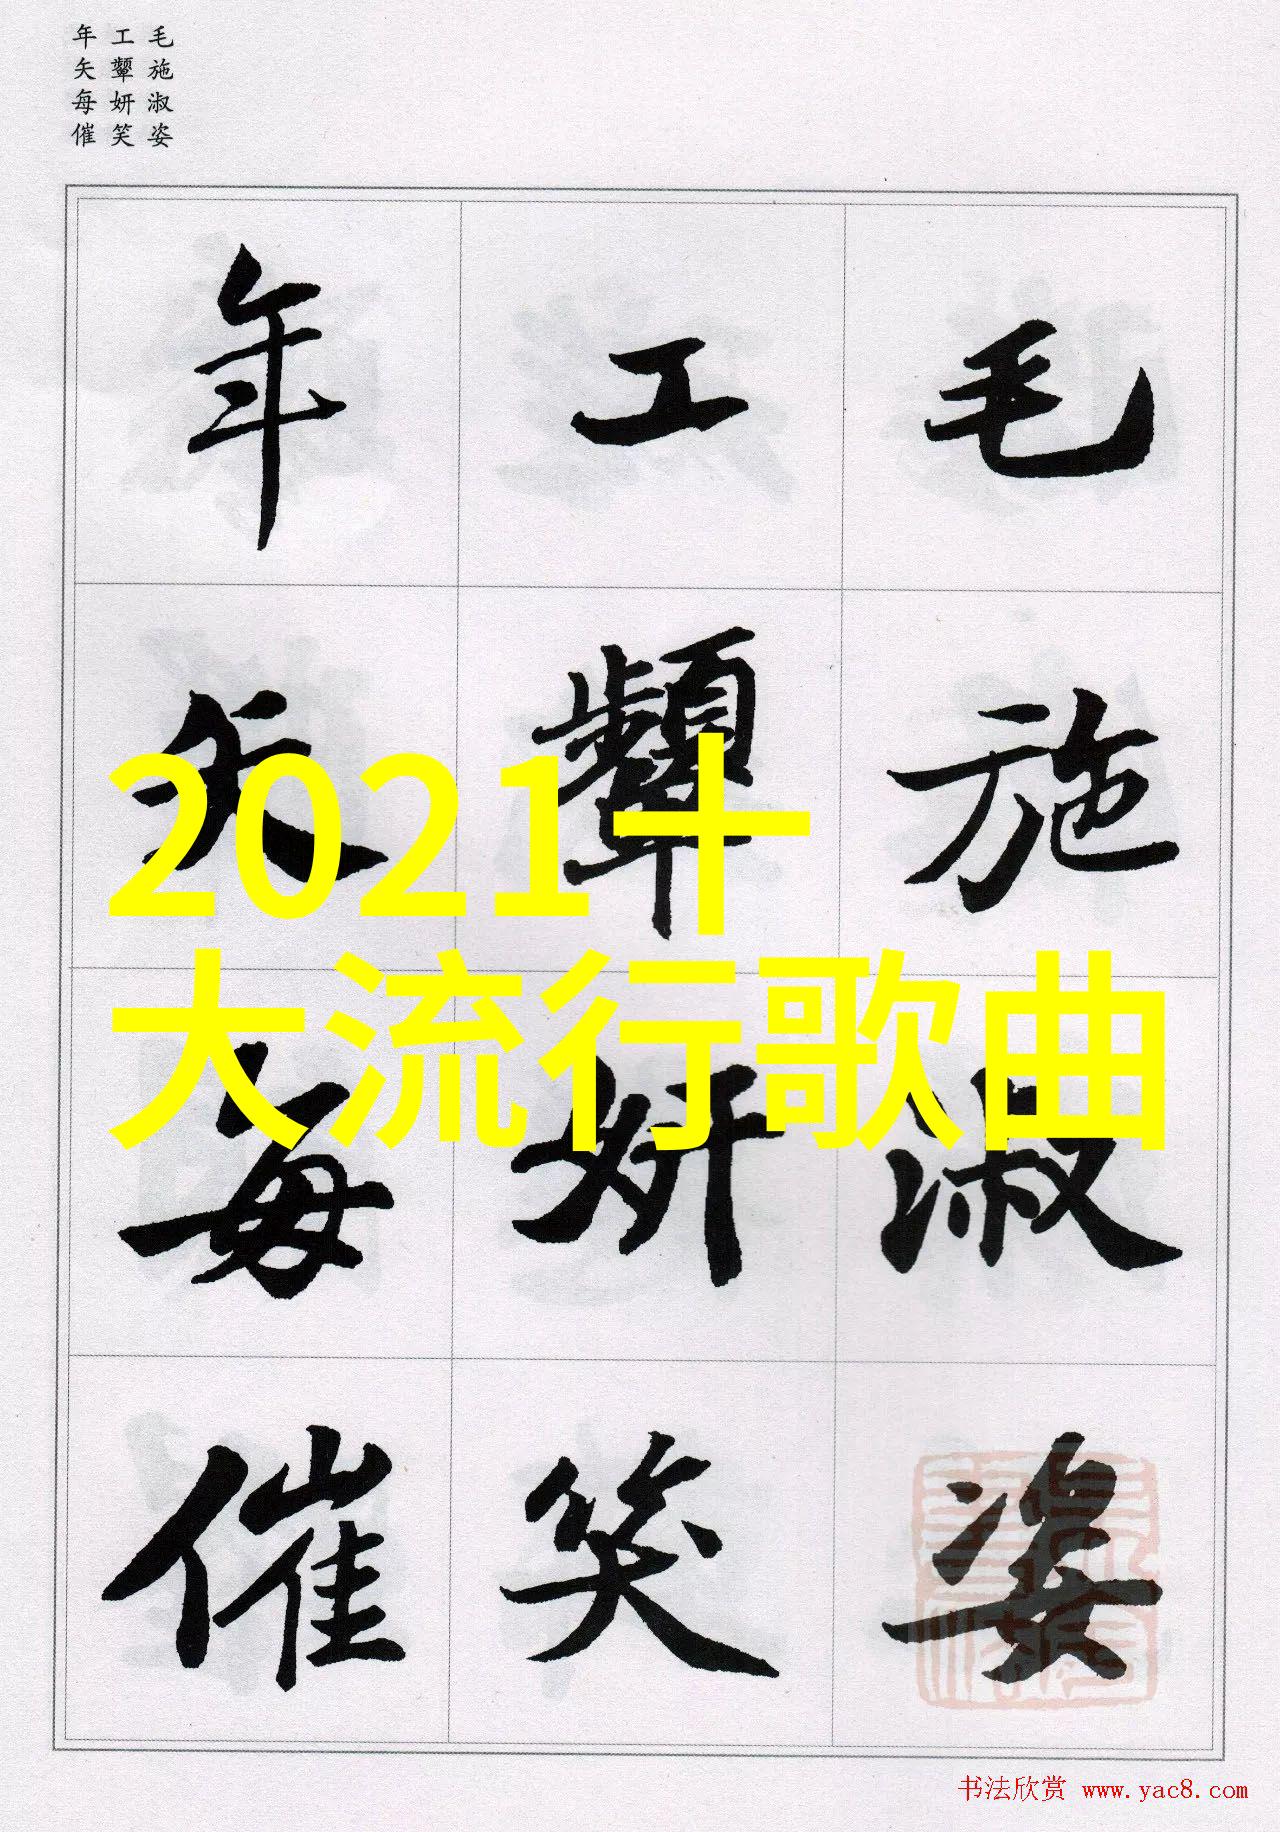 毛施淑姿
工颦妍笑
年矢每催
毛施淑姿
工颦妍笑
年矢每催
2021十
大流行歌曲
书法欣赏 www.yac8.com